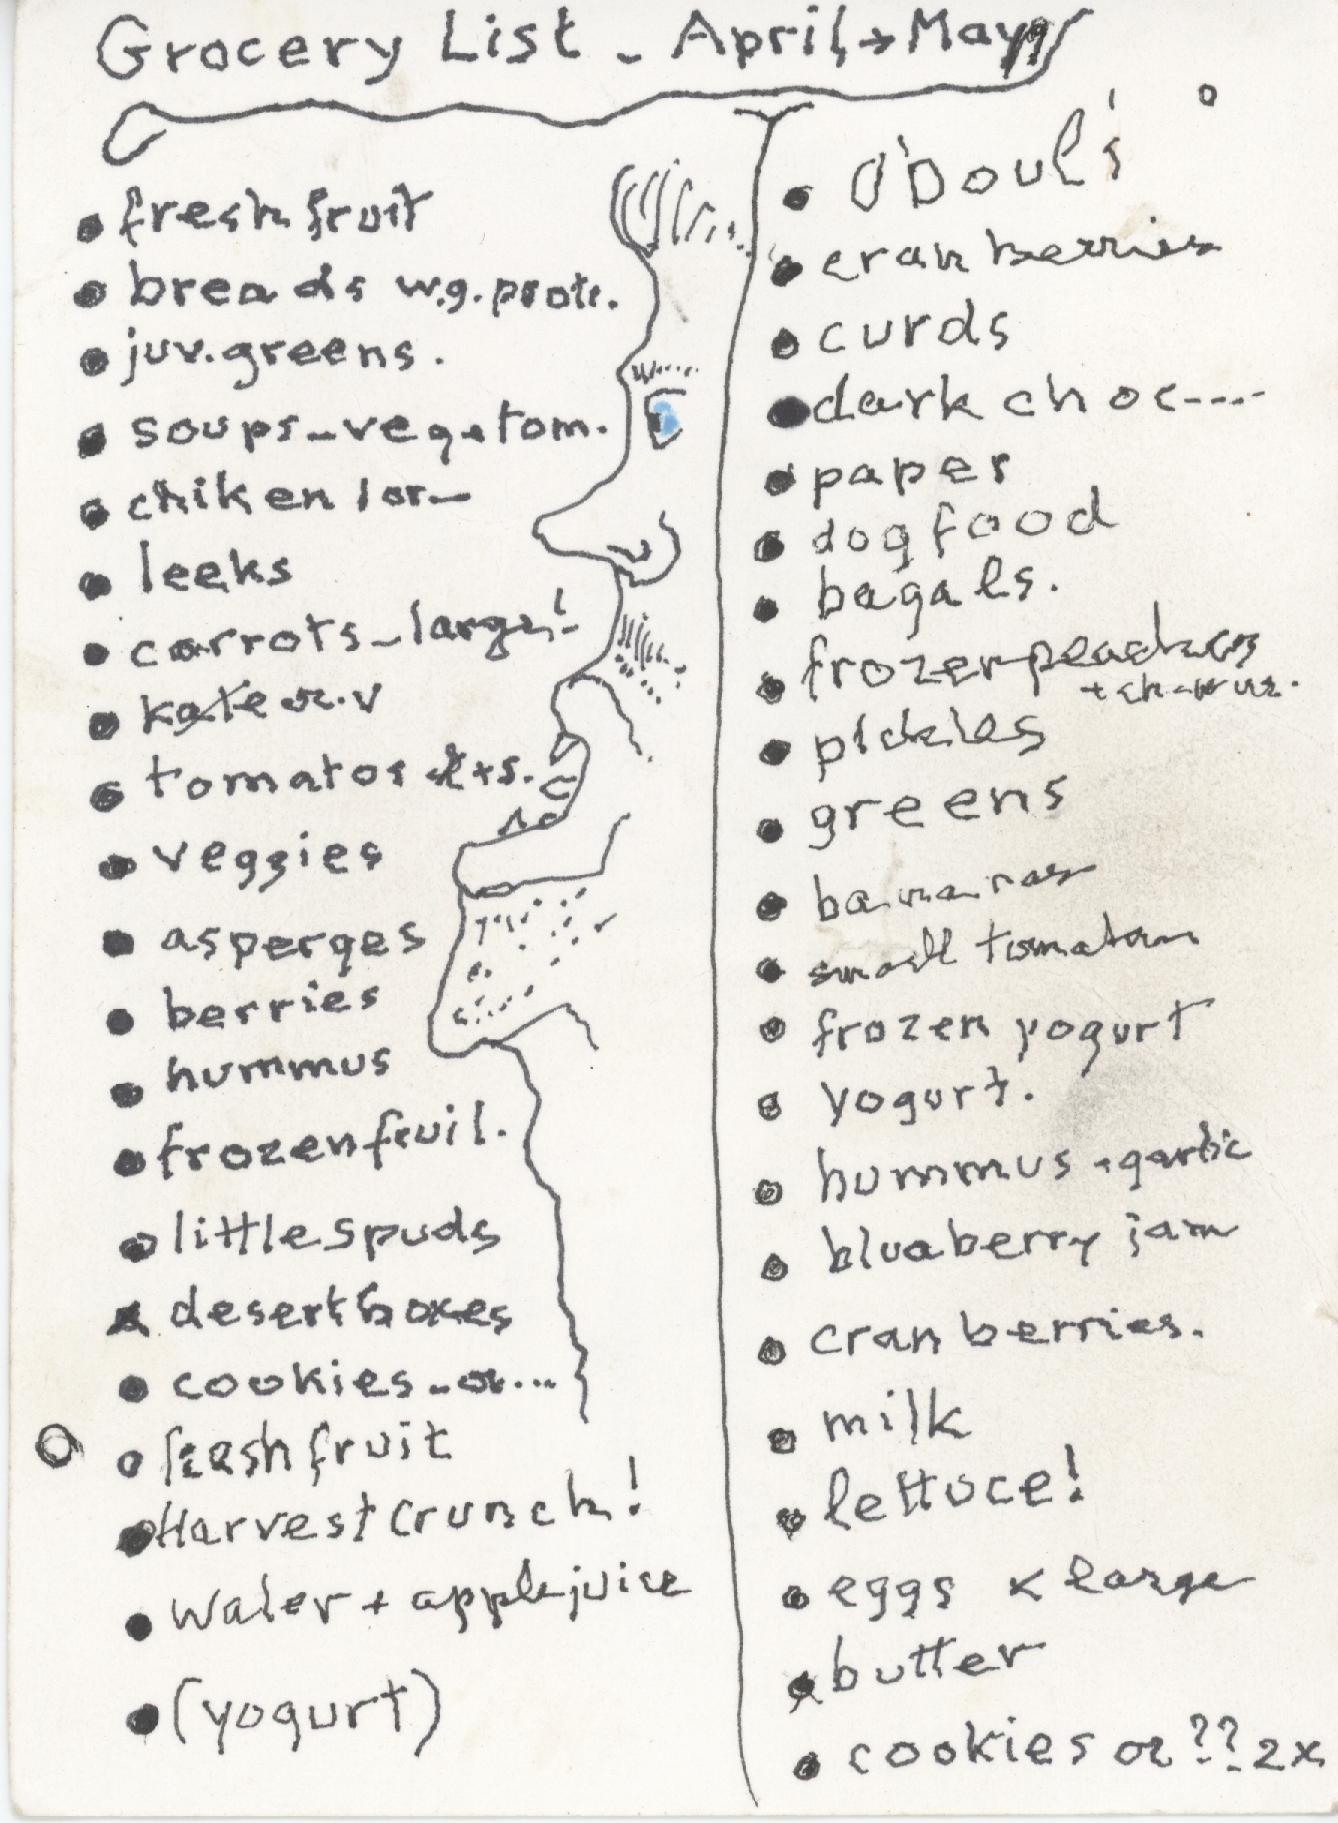 Grocery List - April → May
• fresh fruit
• breads w.g. prot.
• juv. greens.
• soups - veg + tom.
• chiken / or -
• leeks
• carrots - large!
• kale
• tomatos
• veggies
• asperges
• berries
• hummus
• frozen fruit.
• little spuds
• desert boxes
• cookies - or...
• fresh fruit
• Harvest Crunch!
• Water + apple juice
• (yogurt)
• O'Doul's
• cranberries
• curds
• dark choc----
• paper
• dog food
• bagals.
• frozen peaches
• pickles
• greens
• bananas
• small tomatoes
• frozen yogurt
• yogurt.
• hummus - garlic
• blueberry jam
• cranberries.
• milk
• lettuce!
• eggs x large
• butter
• cookies or ?? 2x